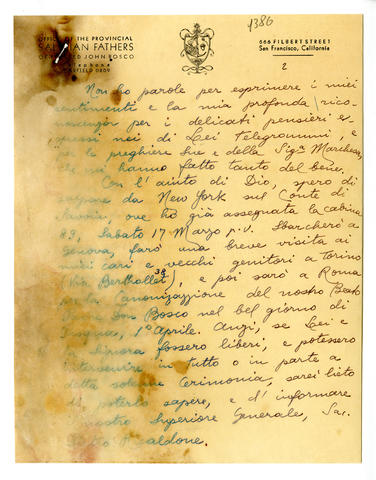 1386
OFFICE OF THE PROVINCIAL
SALESIAN FATHERS
OF BLESSED JOHN BOSCO
Telephone
GARFIELD 0809
666 FILBERT STREET
San Francisco, California
2
Non ho parole per esprimere i miei
sentimenti e la mia profonda rico-
noscenza per i delicati pensieri es-
pressi nei di Lei Telegrammi, e
per le preghiere Sue e della Sigra Marchesa,
che mi hanno fatto tanto del bene.
Con l'aiuto di Dio, spero di
salpare da New York sul Conte di
Savoia, ove ho già assegnata la cabina
83, Sabato 17 Marzo p.v. Sbarcherò a
Genova, farò una breve visita ai
miei cari e vecchi genitori a Torino
(Via Berthollet 39), e poi sarò a Roma
per la Canonizzazione del nostro Beato
Don Bosco nel bel giorno di
Pasqua, 1° Aprile. Anzi, se Lei e
la Signora fossero liberi, e potessero
intervenire in tutto o in parte a
detta solenne Cerimonia, sarei lieto
di poterlo sapere, e d'informare
il nostro Superiore Generale, Sac.
Pietro Ricaldone.